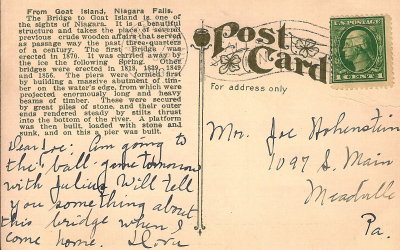 From Goat Island, Niagara Falls.
The Bridge to Goat Island is one of
the sights of Niagara. It is a beautiful
structure and takes the place of several
previous crude wooden affairs that served
as passage way the past three-quarters
of a century. The first bridge was
erected in 1870. It was carried away by
the ice the following Spring. Other
bridges were erected in 1818, 1839, 1849,
and 1856. The piers were formed first
by building a massive abutment of tim-
ber on the water's edge, from which were
projected enormously long and heavy
beams of timber. These were secured
by great piles of stone, and their outer
ends rendered steady by stilts thrust
into the bottom of the river. A platform
was then built, loaded with stone and
sunk, and on this a pier was built.
Dear Joe: Am going to
the ball-game tomorrow
with Julius Will tell
you something about
this bridge when I
come home.
Post Card
For address only
U.S. POSTAGE
1 CENT 1
Mrs. Joe Hohenstein
1097 S. Main
Meadville
Pa.